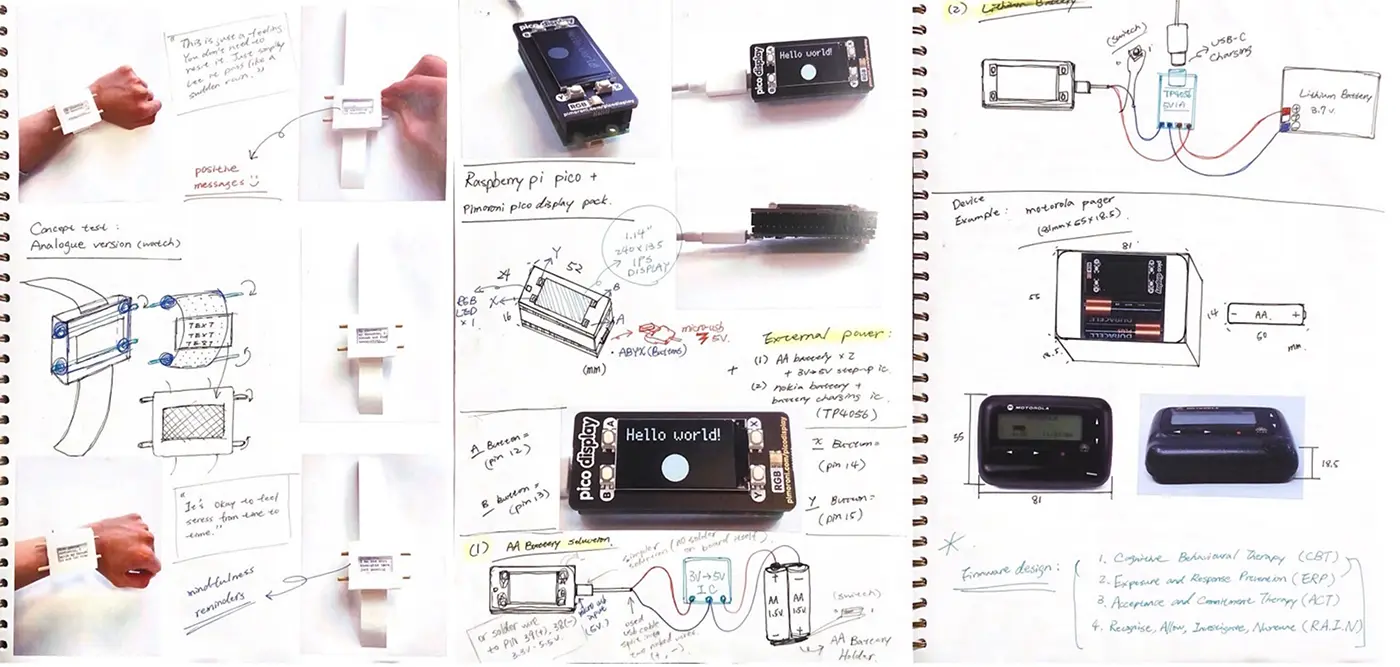 "This is just a feeling
You don't need to
resist it. Just simply
let it pass like a
sudden rain."
positive
messages
Concept test:
Analogue version (watch)
TEXT
TEXT
TEXT
"It's okay to feel
stress from time to
time."
mindfulness
reminders
pico display
RGB
pimoroni.com/picodisplay
Hello world!
pico display
Raspberry pi pico +
Pimoroni pico display pack.
1.14"
240x135
IPS
DISPLAY
24
Y
52
B
RGB
LED
x 1
X
16
A
micro usb
5V.
• ABYX (Buttons)
(mm)
External power:
+
(1) AA battery x 2
+ 3V→5V step-up ic
(2) nokia battery +
battery charging ic
(TP4056)
A Button=
(pin 12)
B button=
(pin 13)
pico display
A
B
Hello world!
X
Y
RGB
pimoroni.com/picodisplay
X Button=
(pin 14)
Y Button=
(pin 15)
(1) AA Battery solution
simpler
solution (no solder
on board itself)
3V→5V
IC
AA
1.5V
AA
1.5V
(switch)
micro usb
(5V)
or solder wire
to PIN 39(+), 38(-)
used
usb cable
split into
two naked wires
(+, -)
AA Battery
Holder.
(2) Lithium Battery
(switch)
USB-C
charging
TP4056
5V1A
Lithium Battery
3.7 v.
Device
Example: motorola pager
(81mm x 55 x 18.5)
81
55
18.5
pico display
DURACELL
DURACELL
14
- AA +
50
mm
MOTOROLA
55
81
18.5
Firmware design:
1. Cognitive Behavioural Therapy (CBT)
2. Exposure and Response Prevention (ERP)
3. Acceptance and Commitment Therapy (ACT)
4. Recognise, Allow, Investigate, Nurture (R.A.I.N)